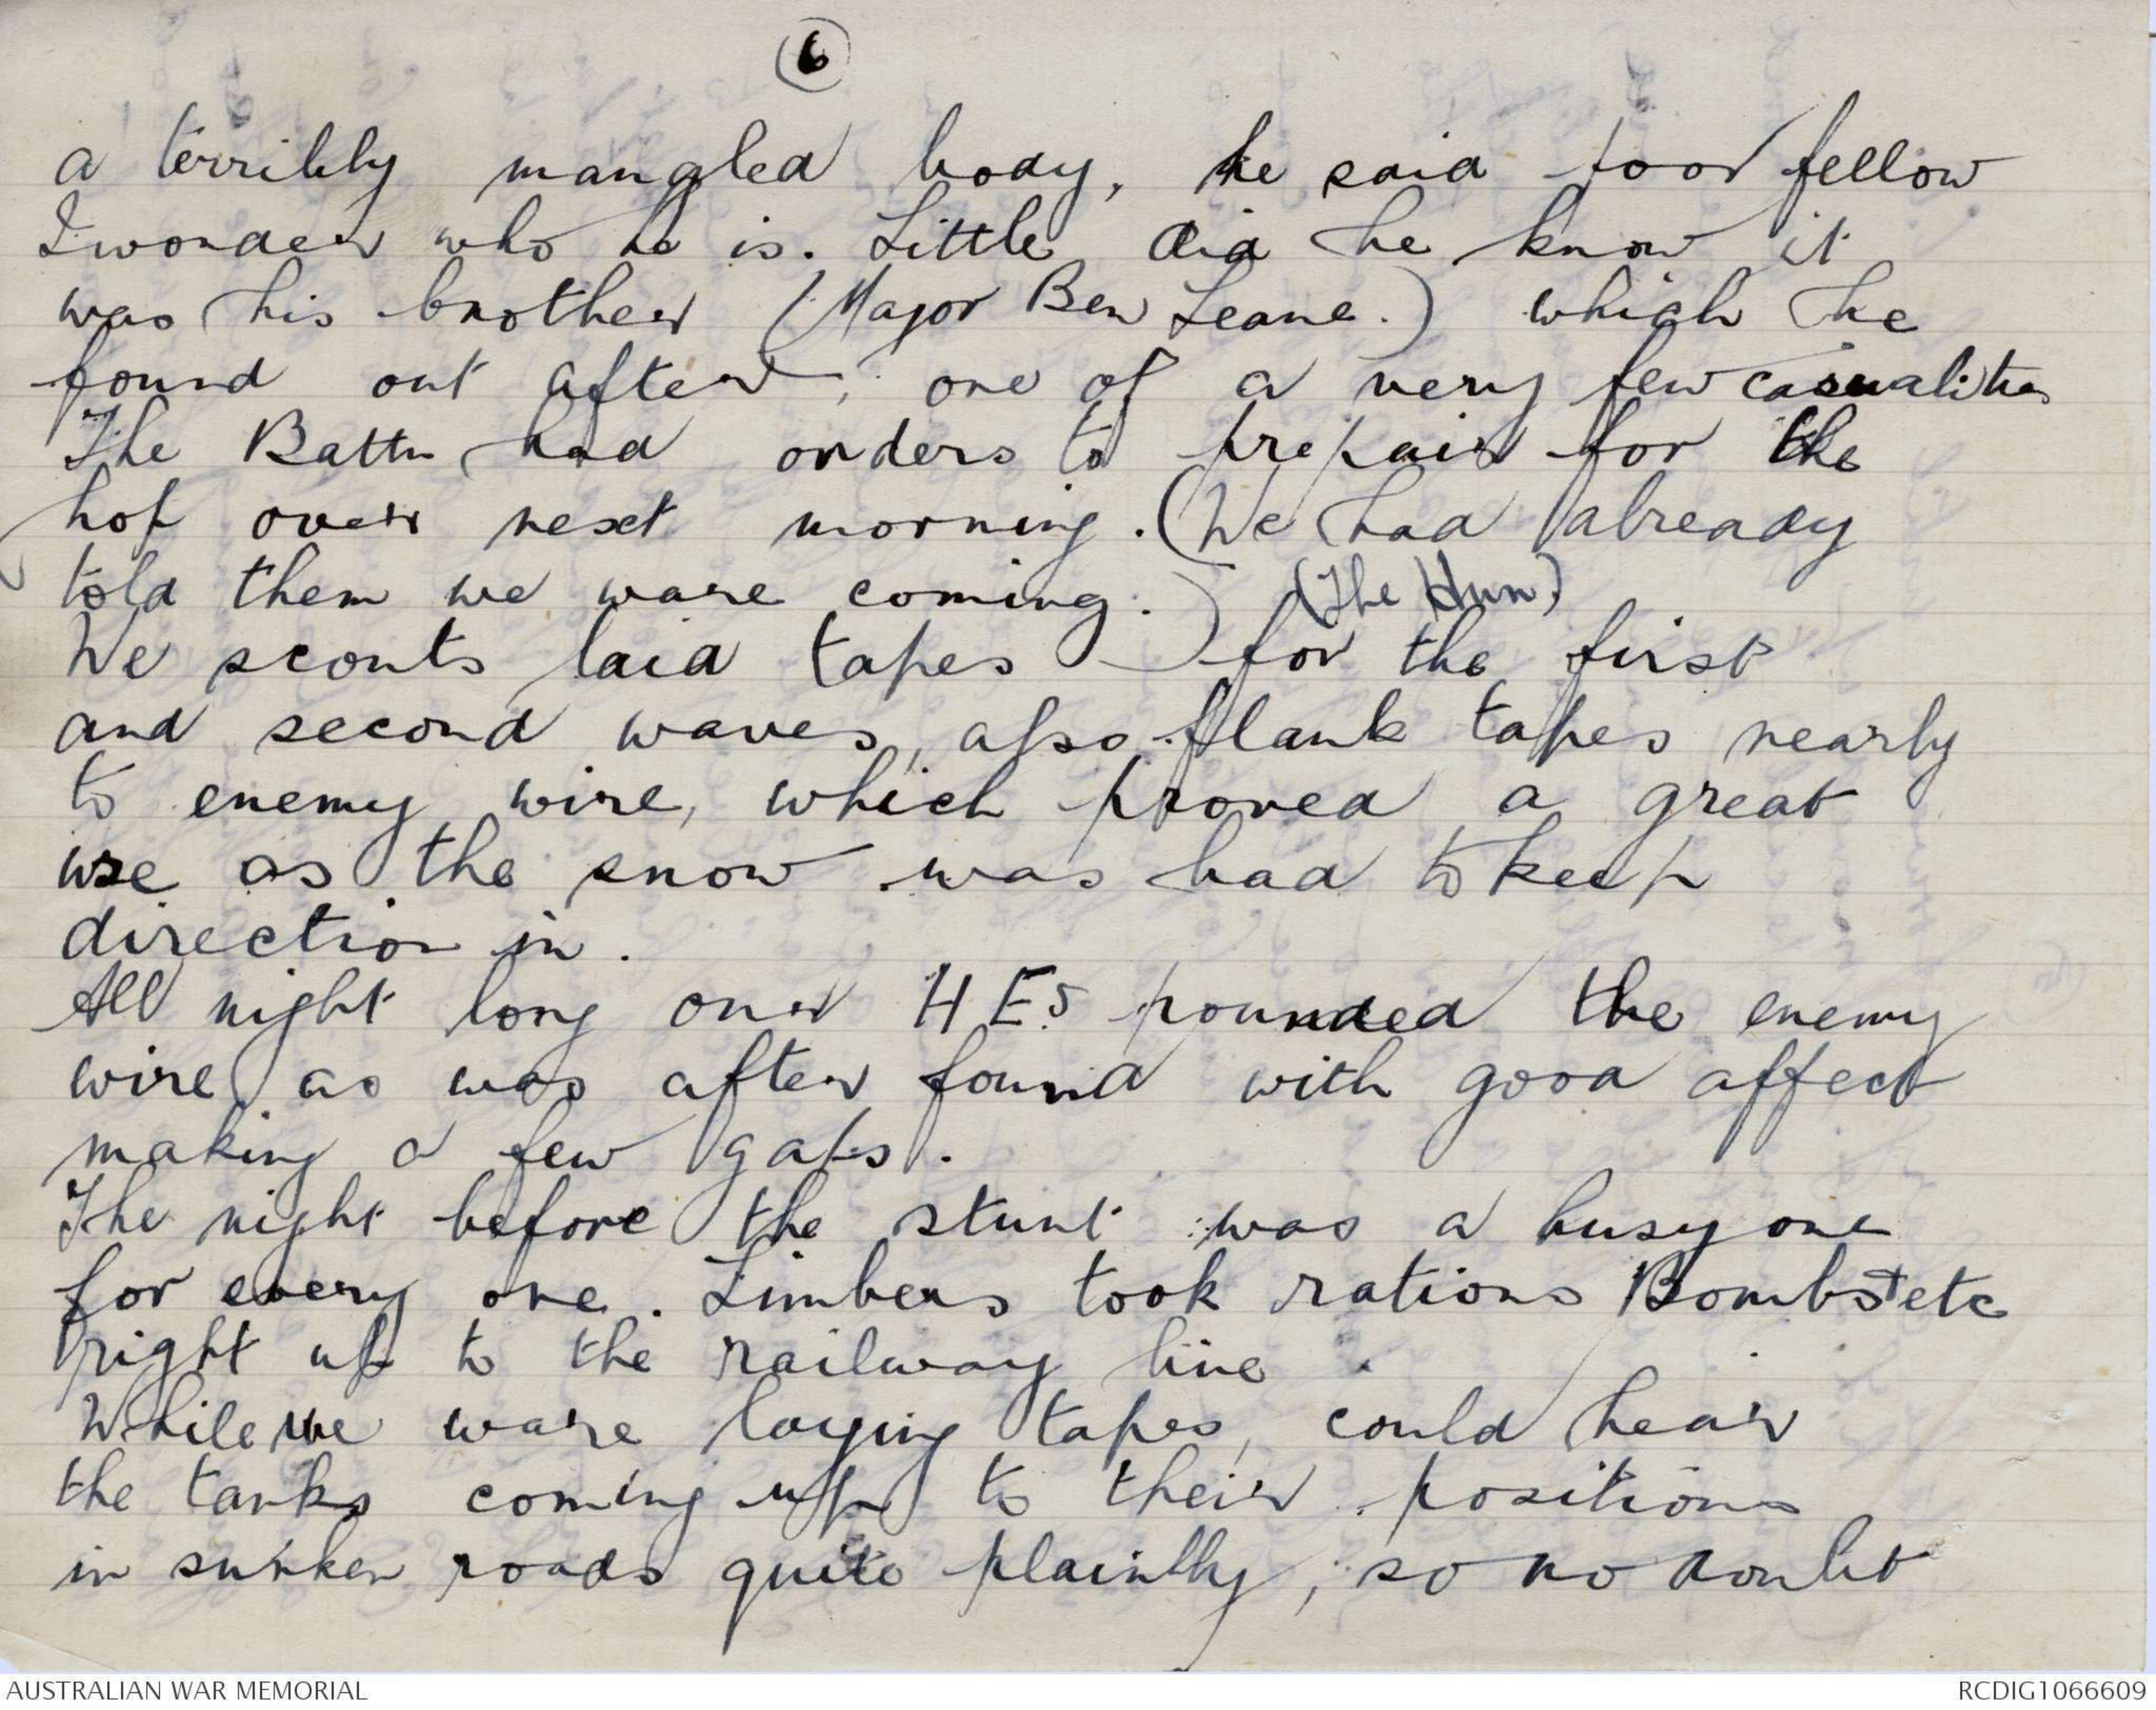 6
a terribly mangled body, he said poor fellow
I wonder who he is. Little did he know it
was his brother (Major Ben Leane.) which he
found out after, one of a very few casualities
The Battn had orders to prepair for the
hop over next morning. (We had already
told them we ware coming.) (The Hun)
We scouts laid tapes for the first
and second waves, also flank tapes nearly
to enemy wire, which proved a great
use as the snow was bad to keep
direction in.
All night long our H E.s pounded the enemy
wire as was after found with good affect
making a few gaps.
The night before the stunt was a busy one
for every one. Limbers took rations Bombs etc
right up to the railway line.
While we ware laying tapes, could hear
the tanks coming up to their positions
in sunken roads quite plainlly, so no doubt
AUSTRALIAN WAR MEMORIAL
RCDIG1066609